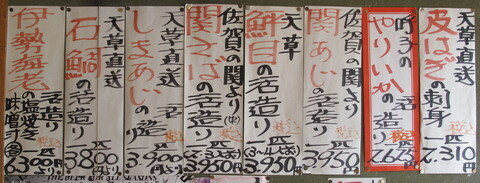 天草直送
皮はぎの刺身
一匹 2.310円
呼子の
やりいかの
活造り
一匹 2.625円
佐賀の
関あじの
活造り
一匹 3.950円
天草
鮮目の
活造り
3.950円
佐賀の関より
関さばの
活造り
3.950円
天草直送
しまあじの
活造り
一匹 3.900円より
天草直送
石鯛の
活造り
一匹 3.800円より
伊勢海老
活造り
の塩焼き
味噌汁
6.300円より
THE BEER FOR ALL SEASONS